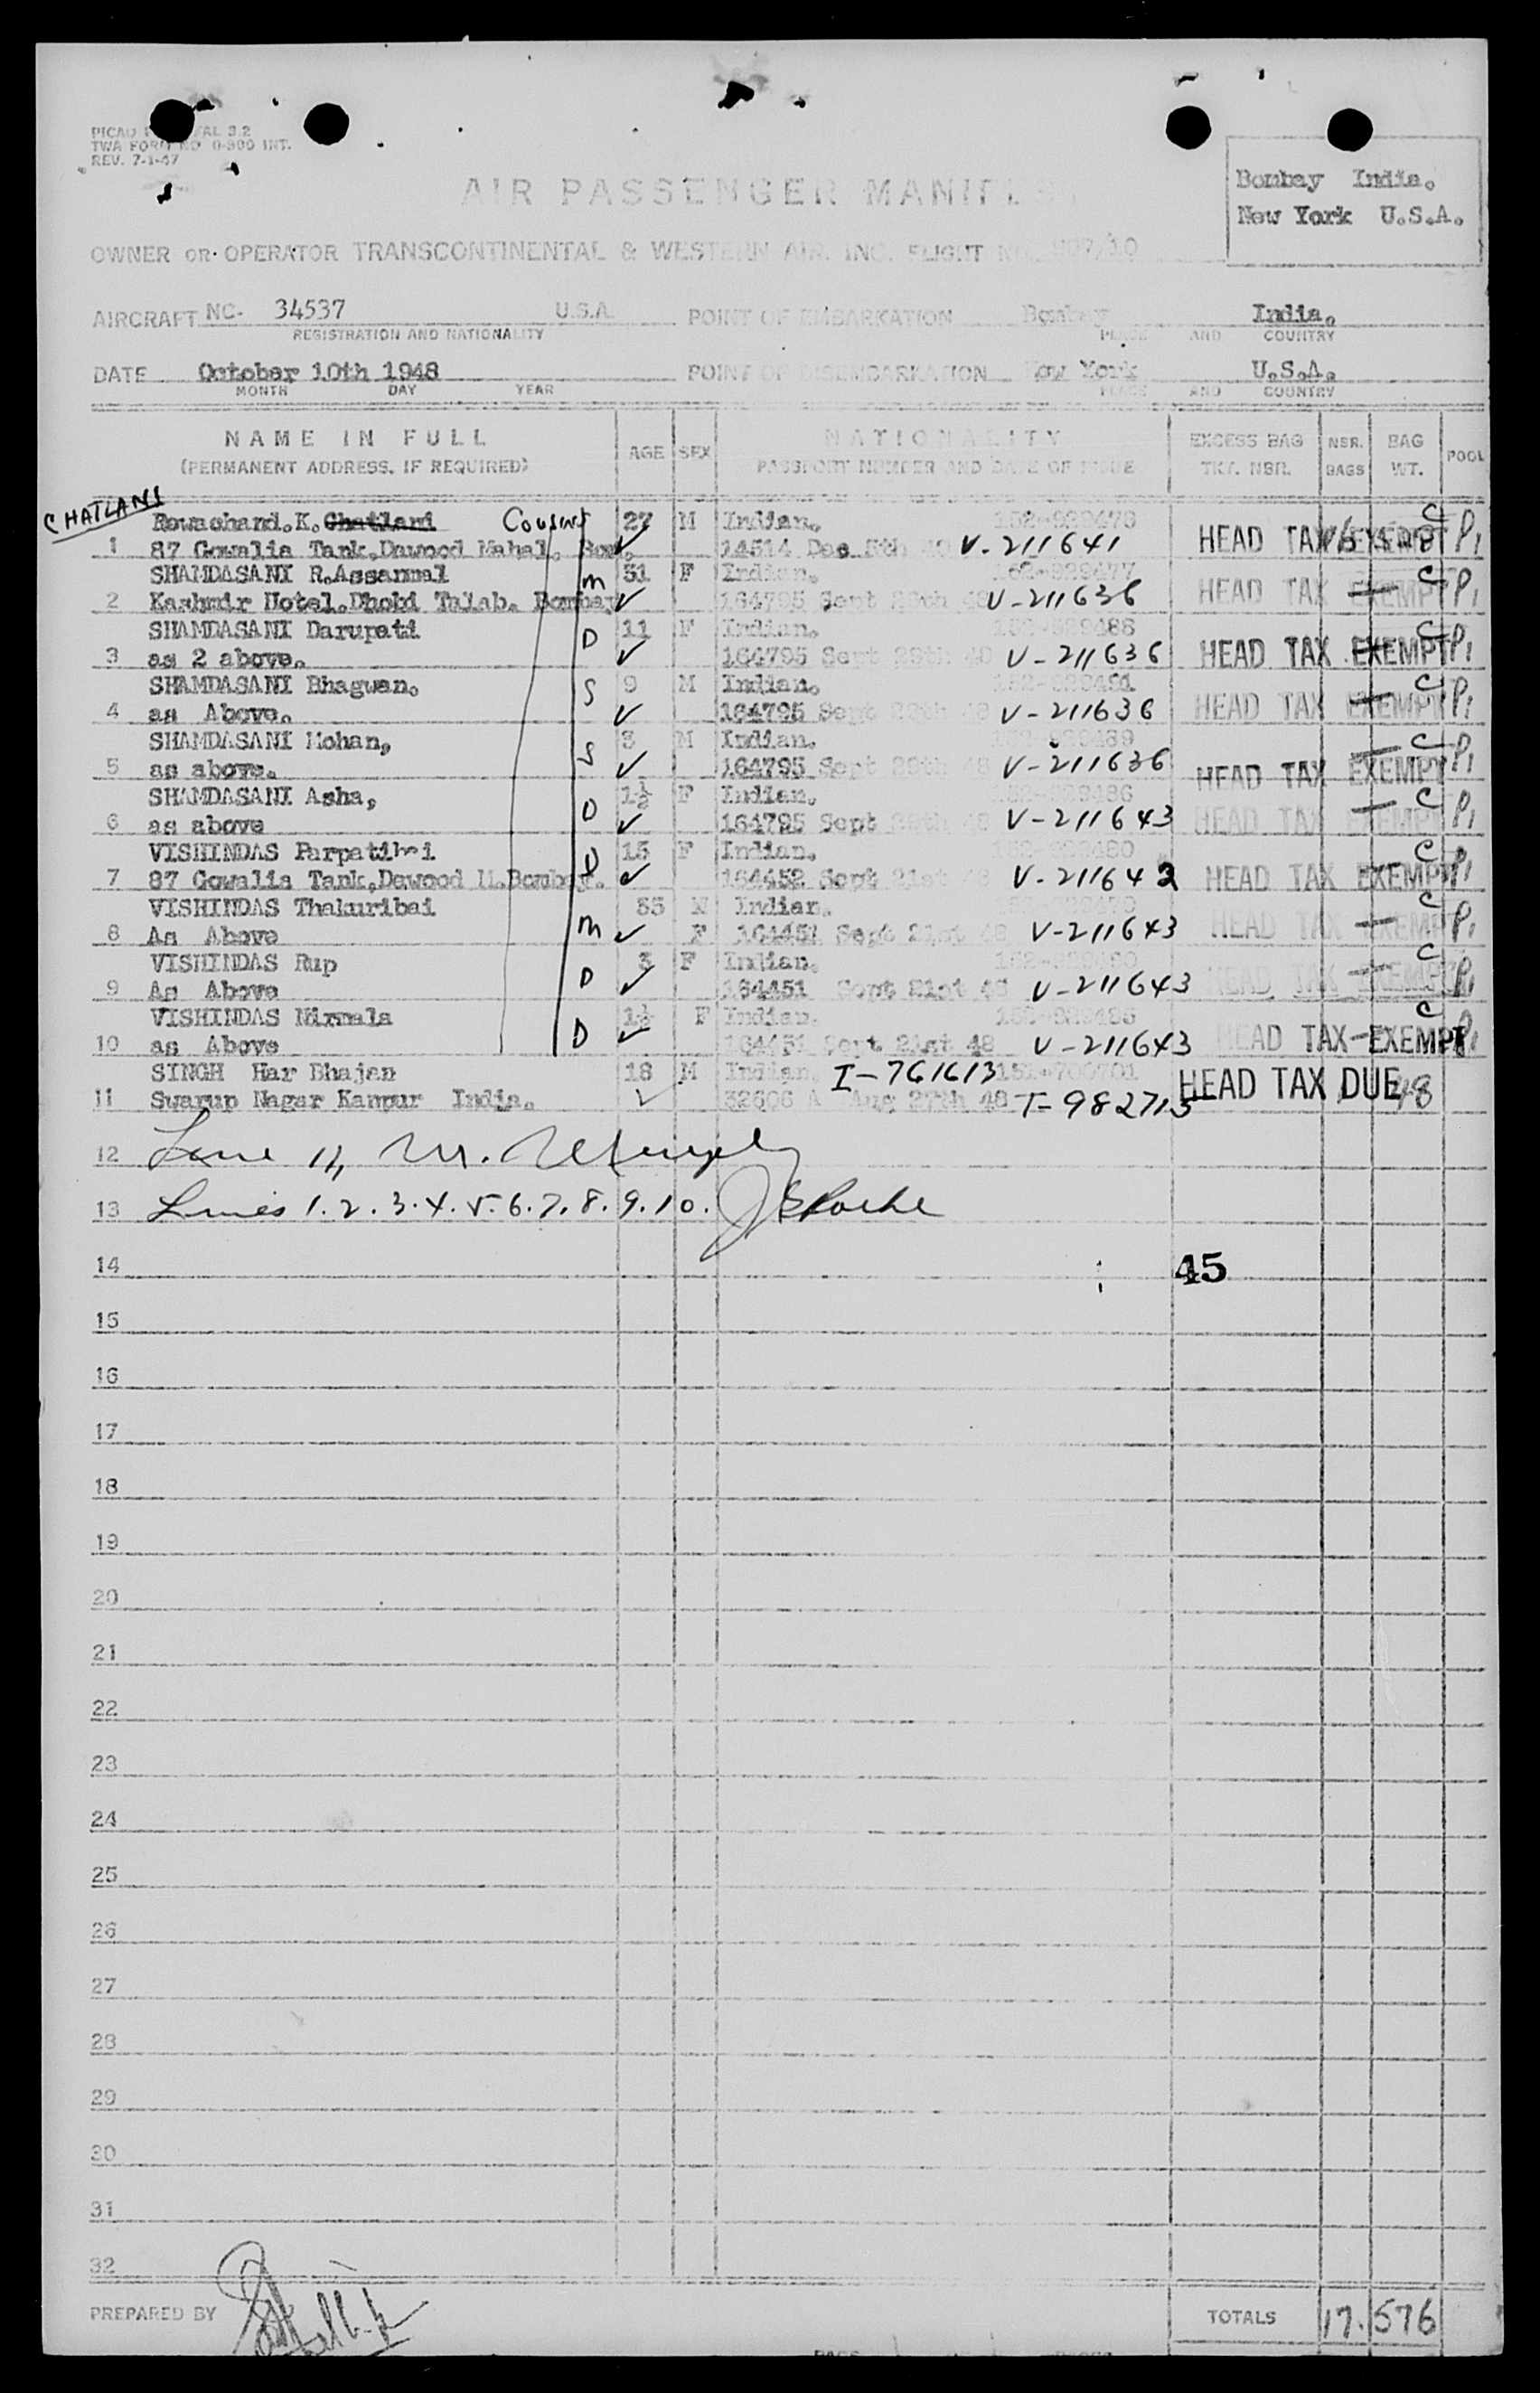 TWA FORM NO 0-900 INT.
REV. 7-1-47
Bombay India.
New York U.S.A.
AIR PASSENGER
OWNER OR OPERATOR TRANSCONTINENTAL & WESTERN AIR. INC. FLIGHT
AIRCRAFT NC- 34537 U.S.A. POINT OF EMBARKATION Bombay India.
REGISTRATION AND NATIONALITY PLACE AND COUNTRY
DATE October 10th 1948 POINT OF DISEMBARKATION New York U.S.A.
MONTH DAY YEAR PLACE AND COUNTRY
NAME IN FULL AGE SEX NATIONALITY EXCESS BAG NSR. BAG POOL
(PERMANENT ADDRESS, IF REQUIRED) PASSPORT NUMBER AND DATE OF ISSUE TKT. NSR. BAGS WT.
CHATLANI
Rewachand.K. Chatlani Cousins 27 M Indian.
1 87 Gowalia Tank,Dawood Mahal. 14514 Dec 5th V-211641 HEAD TAX P1
SHAMDASANI R.Assanmal m 31 F Indian. 152-929477 C
2 Kashmir Hotel.Dhobi Talab. Bombay 164795 Sept 29th 48 V-211636 HEAD TAX EXEMPT P1
SHAMDASANI Darupati D 11 F Indian. 152-929488 C
3 as 2 above. 164795 Sept 29th 48 V-211636 HEAD TAX EXEMPT P1
SHAMDASANI Bhagwan. S 9 M Indian. C
4 as Above. 164795 Sept 29th 48 V-211636 HEAD TAX EXEMPT P1
SHAMDASANI Mohan, S 3 M Indian. C
5 as above. 164795 Sept 29th 48 V-211636 HEAD TAX EXEMPT P1
SHAMDASANI Asha, D 1½ F Indian. C
6 as above 164795 Sept 29th 48 V-211643 HEAD TAX EXEMPT P1
VISHINDAS Parpatibai D 15 F Indian. C
7 87 Gowalia Tank,Dawood M.Bombay. 164452 Sept 21st 48 V-211642 HEAD TAX EXEMPT P1
VISHINDAS Thakuribai 35 M Indian. C
8 As Above m F 164451 Sept 21st 48 V-211643 HEAD TAX EXEMPT P1
VISHINDAS Rup 3 F Indian. C
9 As Above D 164451 Sept 21st 48 V-211643 HEAD TAX EXEMPT P1
VISHINDAS Nirmala 1½ F Indian. C
10 as Above D 164451 Sept 21st 48 V-211643 HEAD TAX EXEMPT P1
SINGH Har Bhajan 18 M Indian I-761613
11 Swarup Nagar Kanpur India. Aug 27th 48 T-982715 HEAD TAX DUE 48
12 Line 11,
13 Lines 1.2.3.4.5.6.7.8.9.10.
14 45
15
16
17
18
19
20
21
22
23
24
25
26
27
28
29
30
31
32
PREPARED BY TOTALS 17. 576